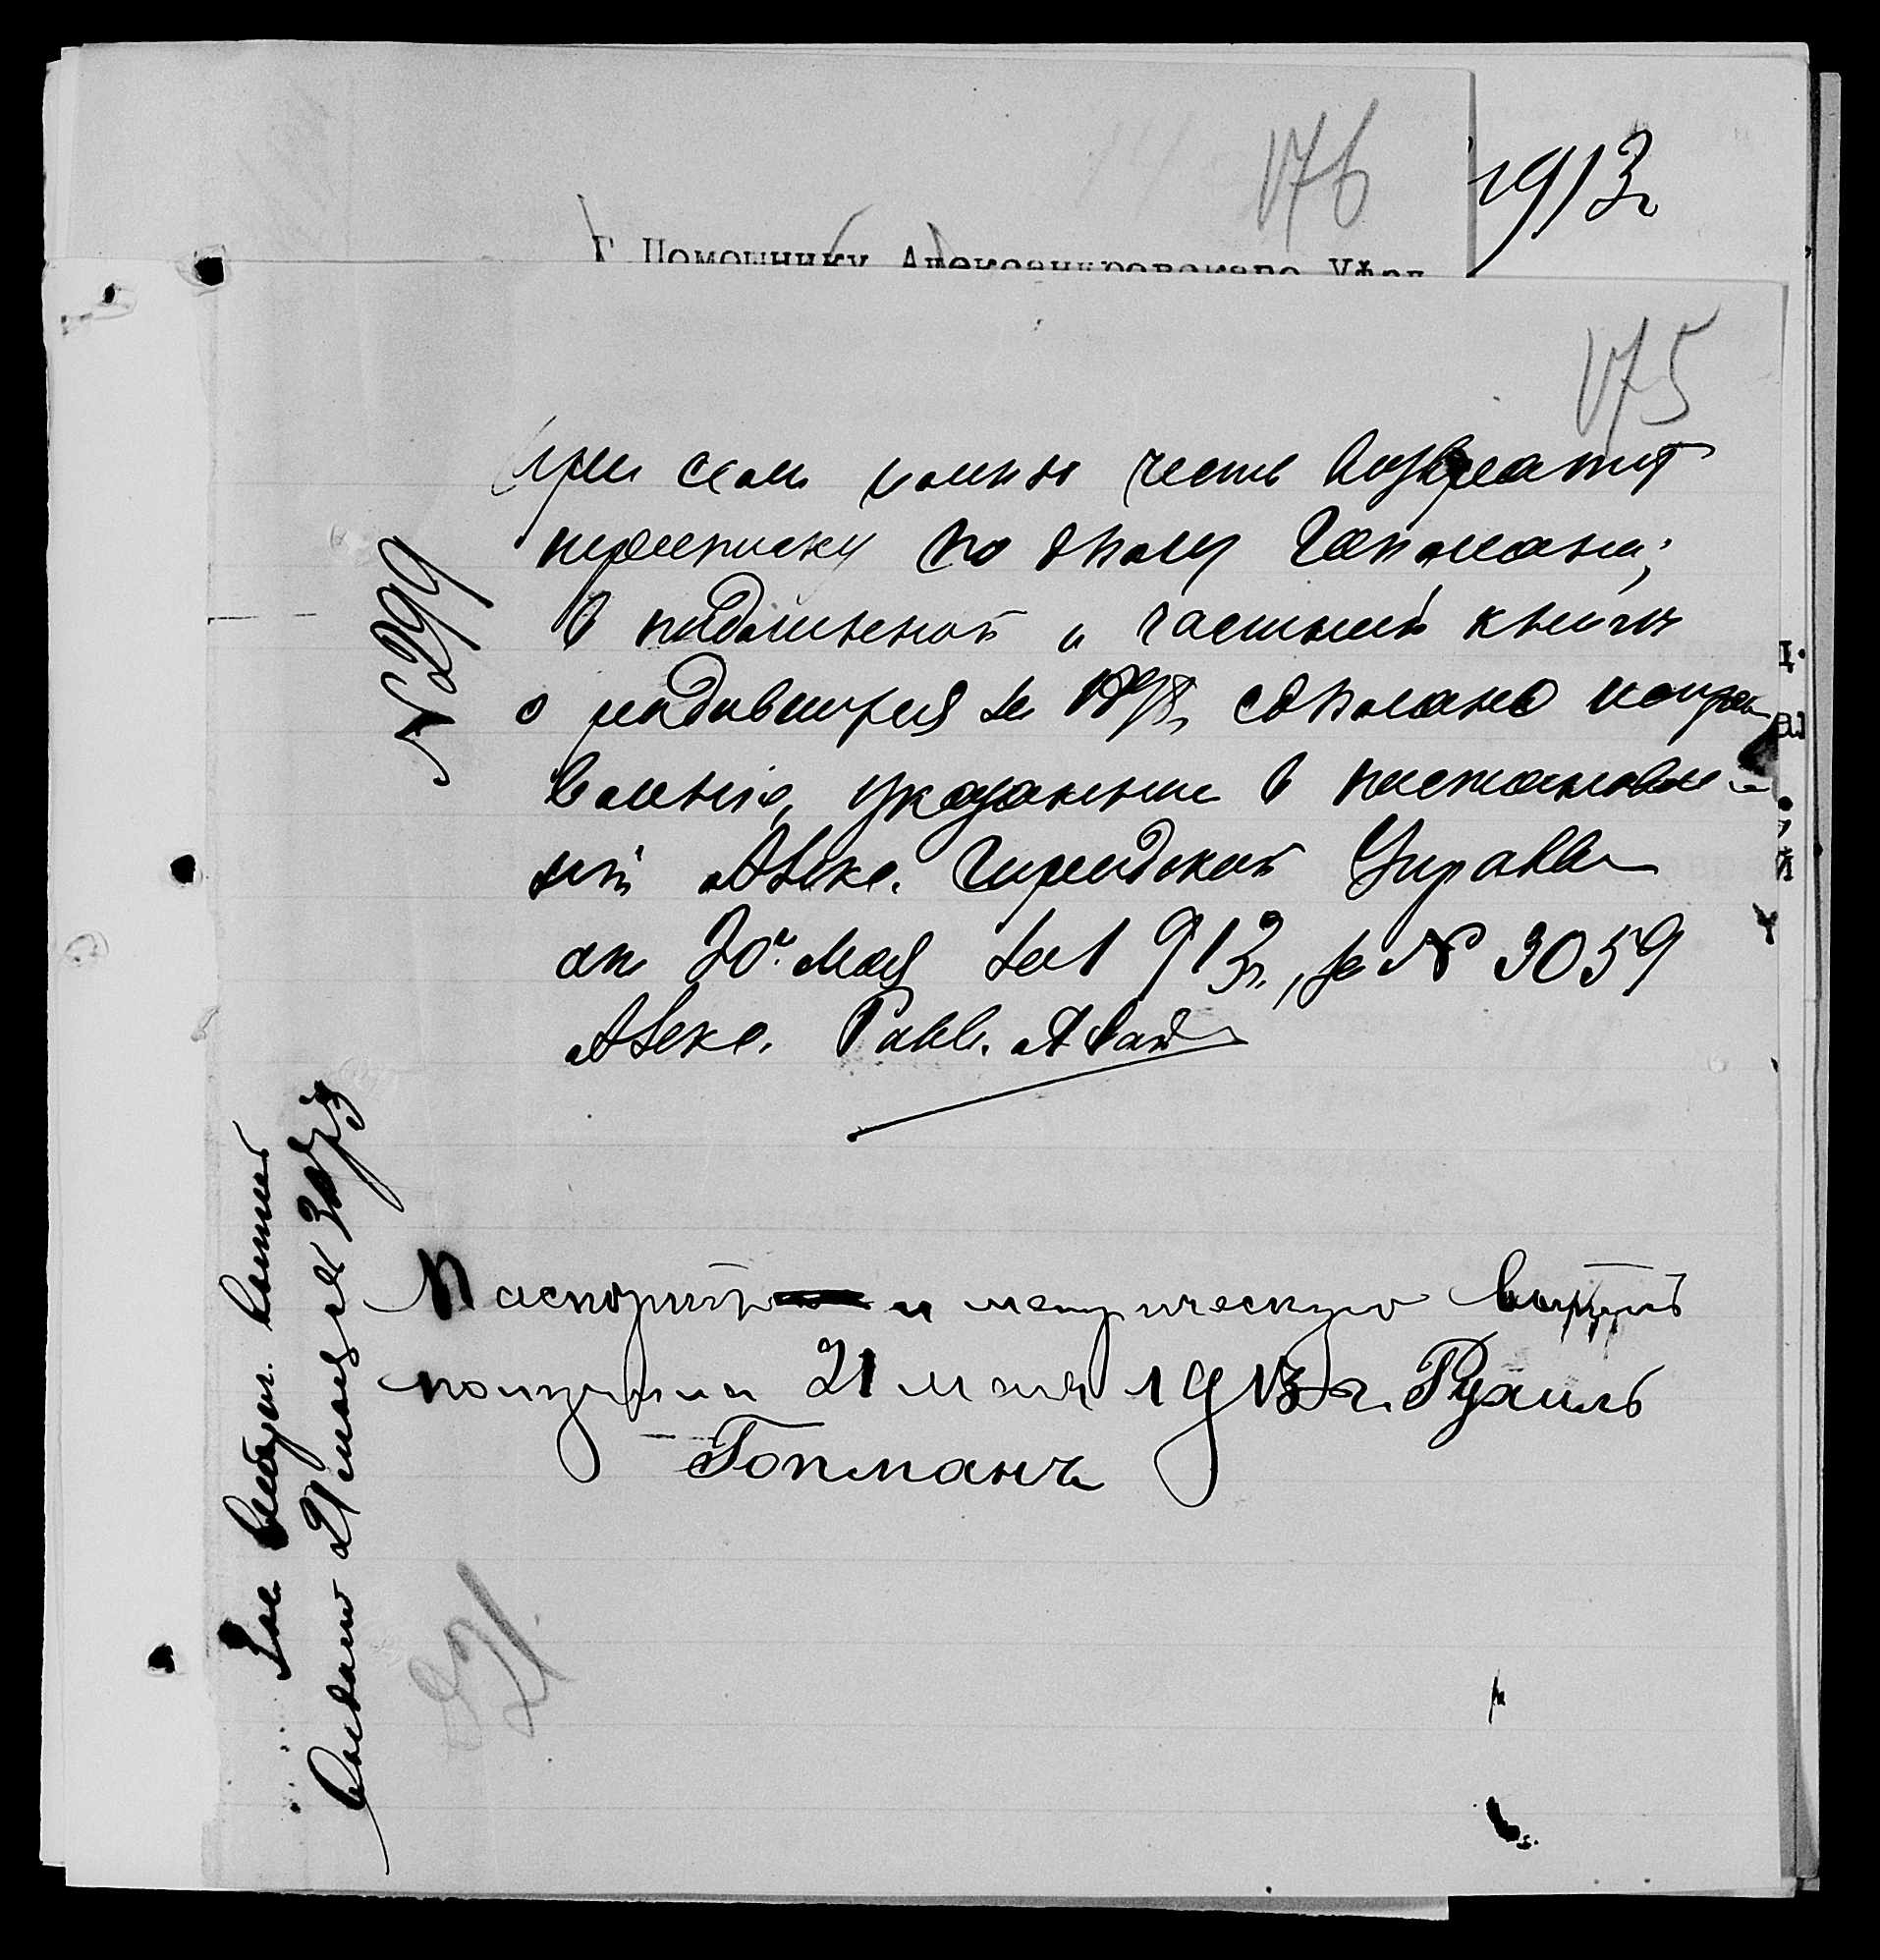 176
1913 г
Г. Помощнику Александровскаго Уѣзд
175
№ 299
При сем имею честь возвратит
переписку по дѣлу Гопмана;
в подлинной и частной книгѣ
о родившихся за г., сдѣлано исправ
указанные в постановле-
ній Алекс. Городской Управы
от 20 Мая за 1913 г., за № 3059
Алекс. Равв.
Паспорт и метрическую выпись
получил 21 мая 1913 г. Рухиль
Гопманъ
21 мая